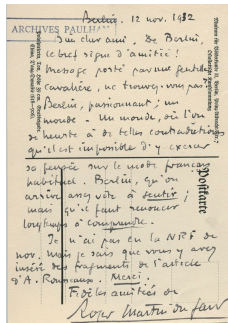 Berlin, 12 nov. 1932
ARCHIVES PAULHAN
Bien cher ami. De Berlin,
le bref signe d'amitié !
Message porté par une gentille
cavalière, ne trouvez-vous pas ?
Berlin, passionnant ; un
monde. Un monde, où l'on
se heurte à de telles contradictions
qu'il est impossible d'y exercer
sa pensée sur le mode français
habituel. Berlin, qu'on
arrive assez vite à sentir ;
mais qu'il faut renoncer
longtemps à comprendre.
Je n'ai pas eu la NRF de
nov. mais je sais que vous y avez
inséré des fragments de l'article
d'A. Rousseaux. Merci.
Fidèles amitiés de
Roger Martin du Gard
Postkarte